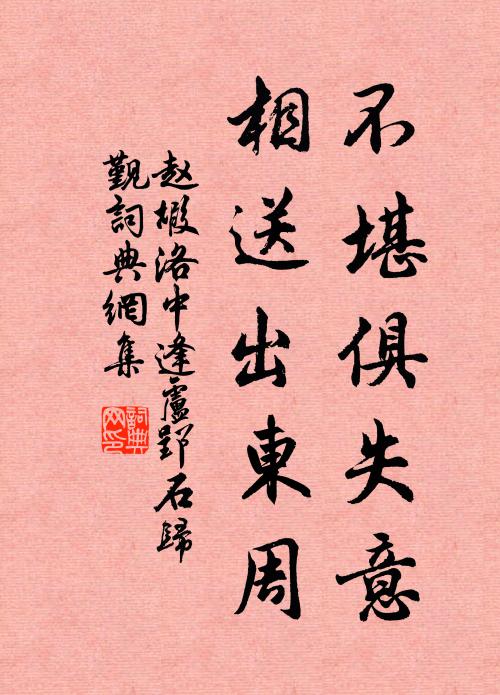 不堪俱失意
相送出東周
赵嘏洛中逢盧郢石歸
觐詞典網集
詞典网印